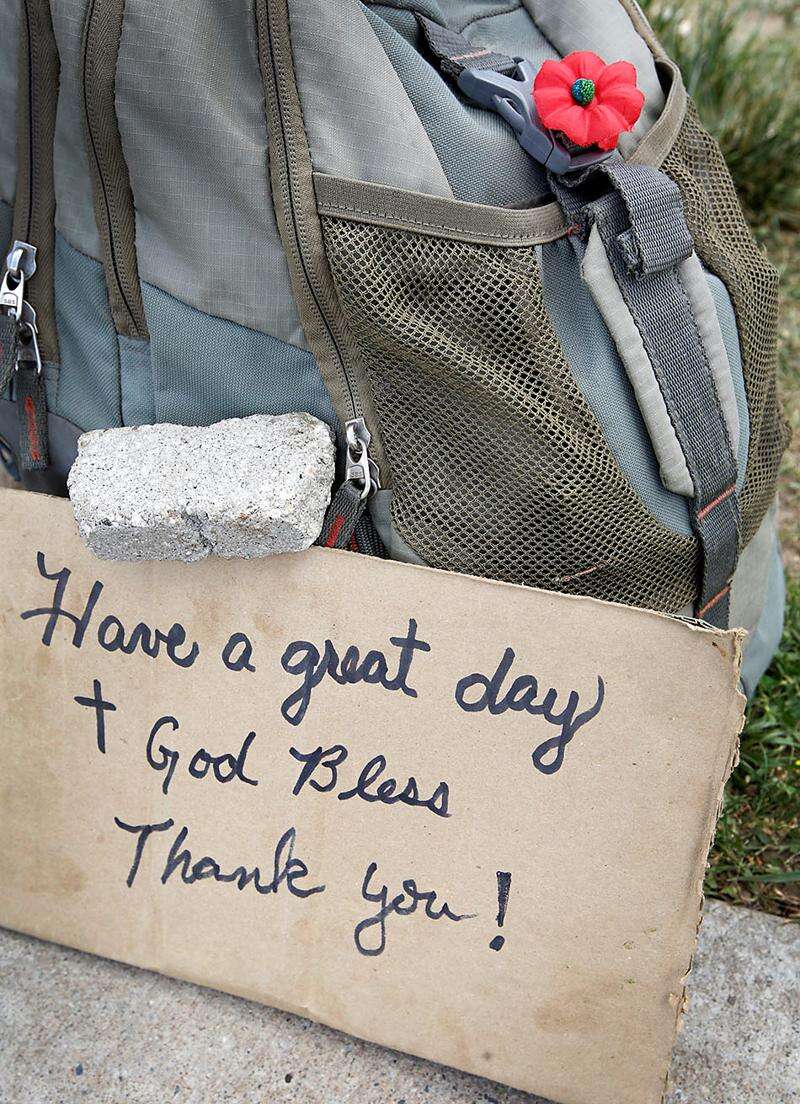 Have a great day
† God Bless
Thank you!